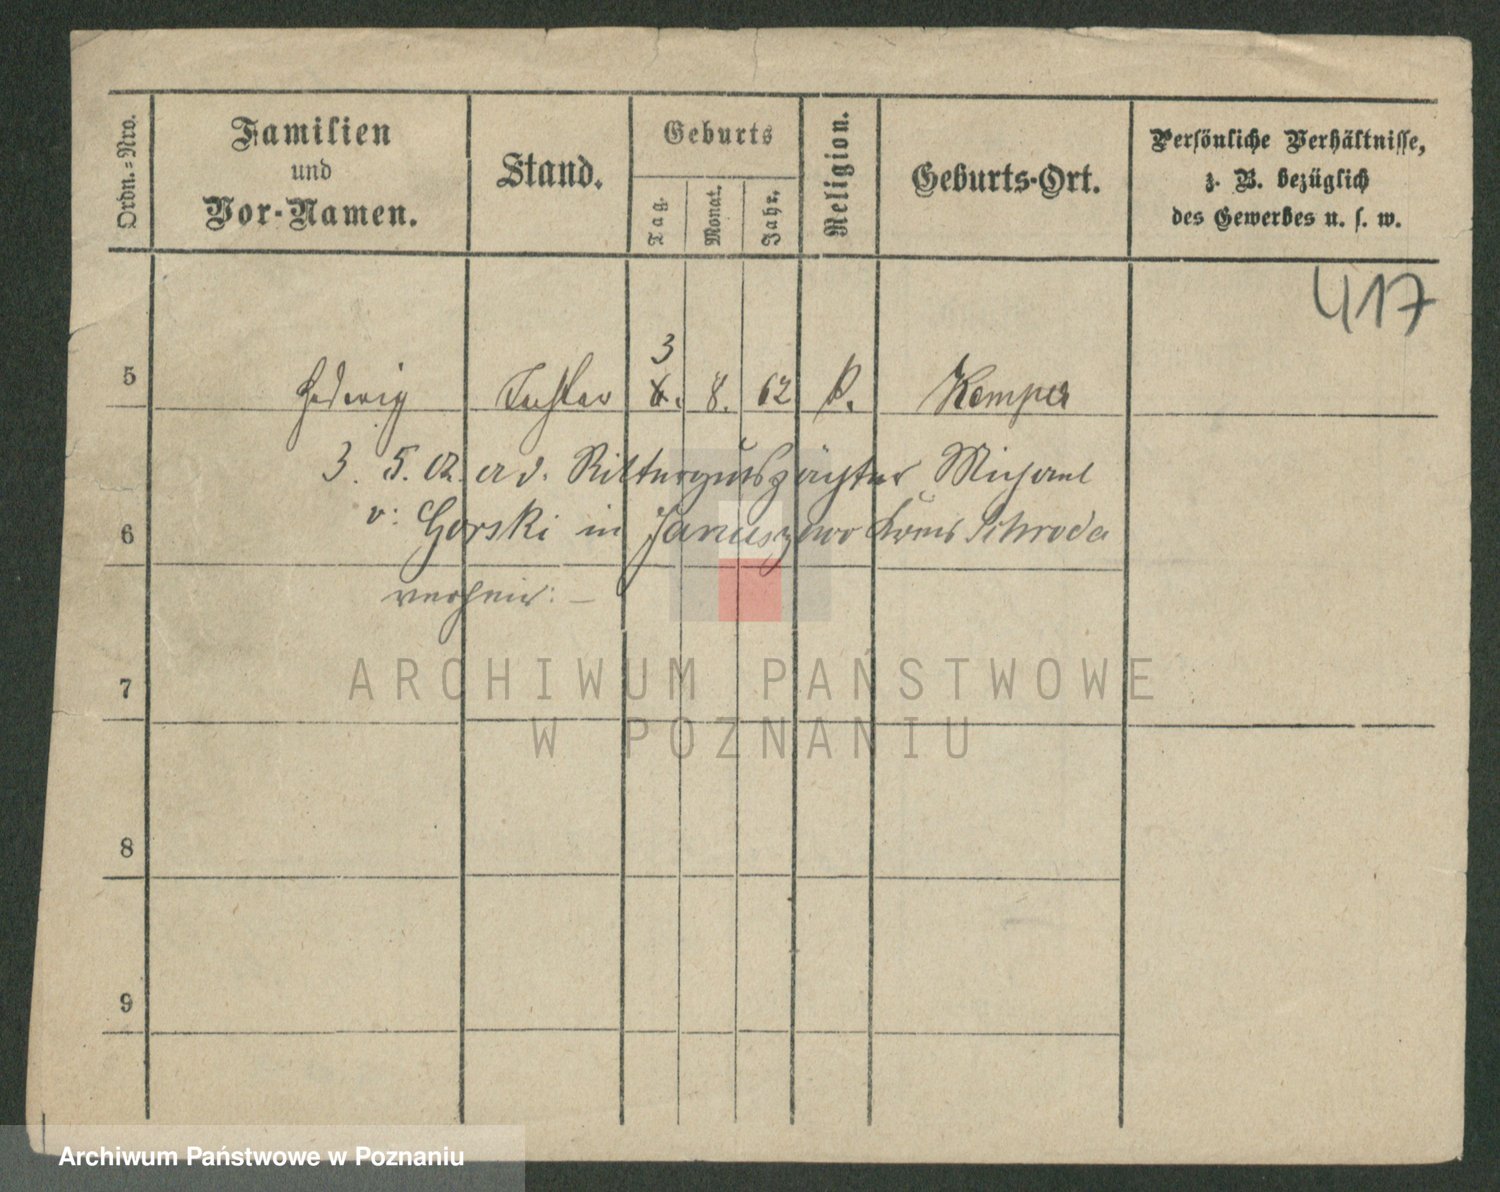 Ordn.=Nro.
Familien
und
Vor-Namen.
Stand.
Geburts
Tag.
Monat.
Jahr.
Religion.
Geburts-Ort.
Persönliche Verhältnisse,
z. B. bezüglich
des Gewerbes u. s. w.
417
3
5 Hedwig Tochter 6. 8. 62 Kempen
3. 5. Rittergutspächter Michael
6 v: Gorski in Januszewo Kreis Schroda
verheir: —
7
ARCHIWUM PAŃSTWOWE
W POZNANIU
8
9
Archiwum Państwowe w Poznaniu